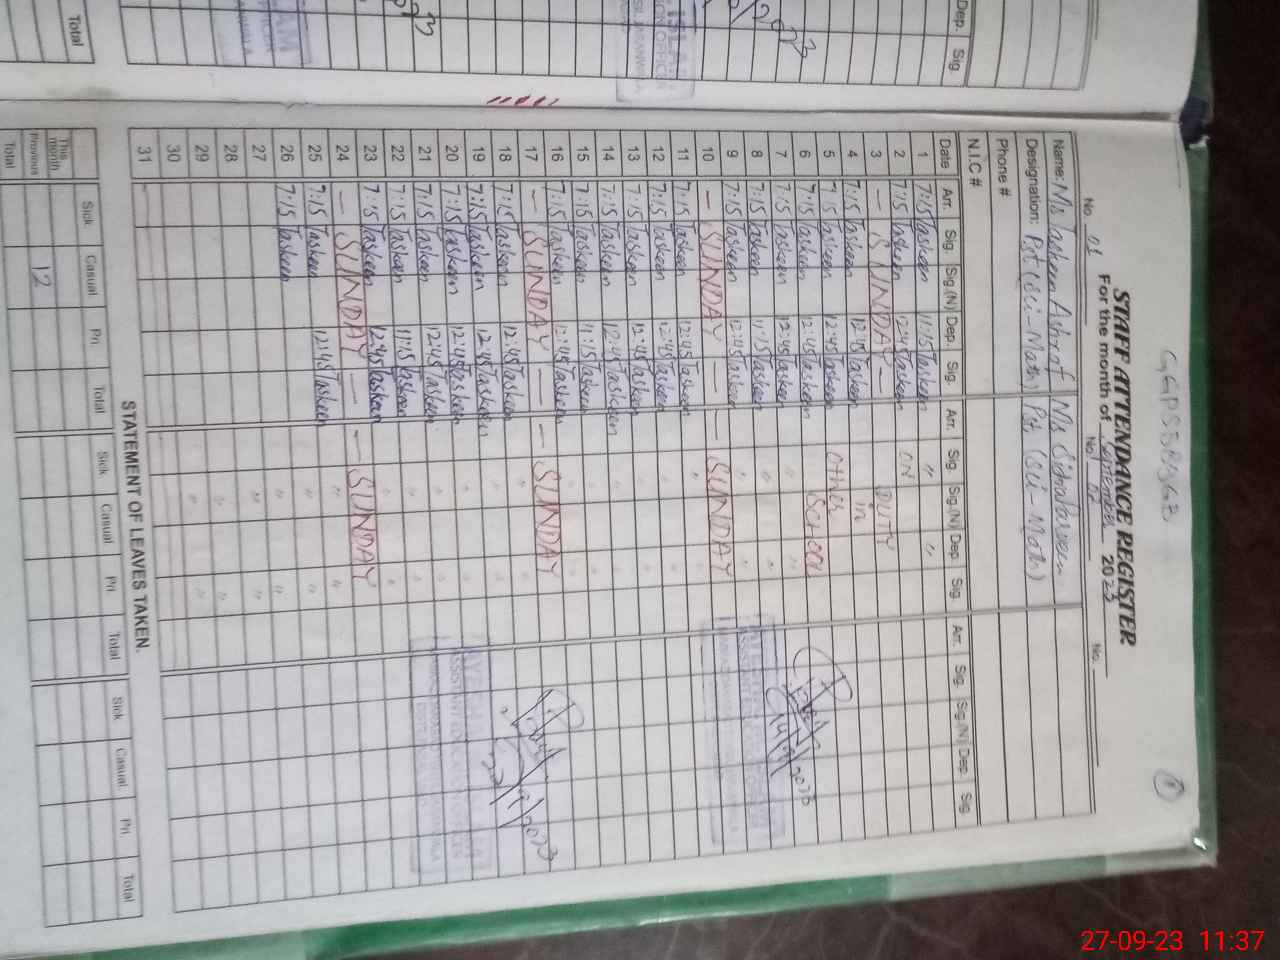 STAFF ATTENDANCE REGISTER
For the month of September 2023
No. 01 No. 02 No.
Name: Ms Taskeen Ashraf Ms Sidra Parveen
Designation: Pst (Sci-Math) Pst (Sci-Math)
Phone #
N.I.C #
Date Arr. Sig. Sig.(N) Dep. Sig. Arr. Sig. Sig.(N) Dep. Sig. Arr. Sig. Sig.(N) Dep. Sig
1 7:15 Taskeen 11:15 Taskeen " "
2 7:15 Taskeen 12:45 Taskeen ON
3 — SUNDAY — DUTY
4 7:15 Taskeen 12:45 Taskeen in
5 7:15 Taskeen 12:45 Taskeen other
6 7:15 Taskeen 12:45 Taskeen School
7 7:15 Taskeen 12:45 Taskeen " "
8 7:15 Taskeen 11:15 Taskeen " "
9 7:15 Taskeen 12:45 Taskeen " "
10 — SUNDAY — — SUNDAY
11 7:15 Taskeen 12:45 Taskeen
12 7:15 Taskeen 12:45 Taskeen
13 7:15 Taskeen 12:45 Taskeen
14 7:15 Taskeen 12:45 Taskeen
15 7:15 Taskeen 11:15 Taskeen
16 7:15 Taskeen 12:45 Taskeen
17 — SUNDAY — — SUNDAY
18 7:15 Taskeen 12:45 Taskeen
19 7:15 Taskeen 12:45 Taskeen
20 7:15 Taskeen 12:45 Taskeen
21 7:15 Taskeen 12:45 Taskeen
22 7:15 Taskeen 11:15 Taskeen
23 7:15 Taskeen 12:45 Taskeen
24 — SUNDAY — — SUNDAY
25 7:15 Taskeen 12:45 Taskeen " "
26 7:15 Taskeen " "
27 " "
28 " "
29 " "
30
31
STATEMENT OF LEAVES TAKEN.
Sick Casual Pri. Total Sick Casual Pri. Total Sick Casual Pri. Total
This month
Provinous 12
Total
Dep. Sig.
Total
27-09-23 11:37